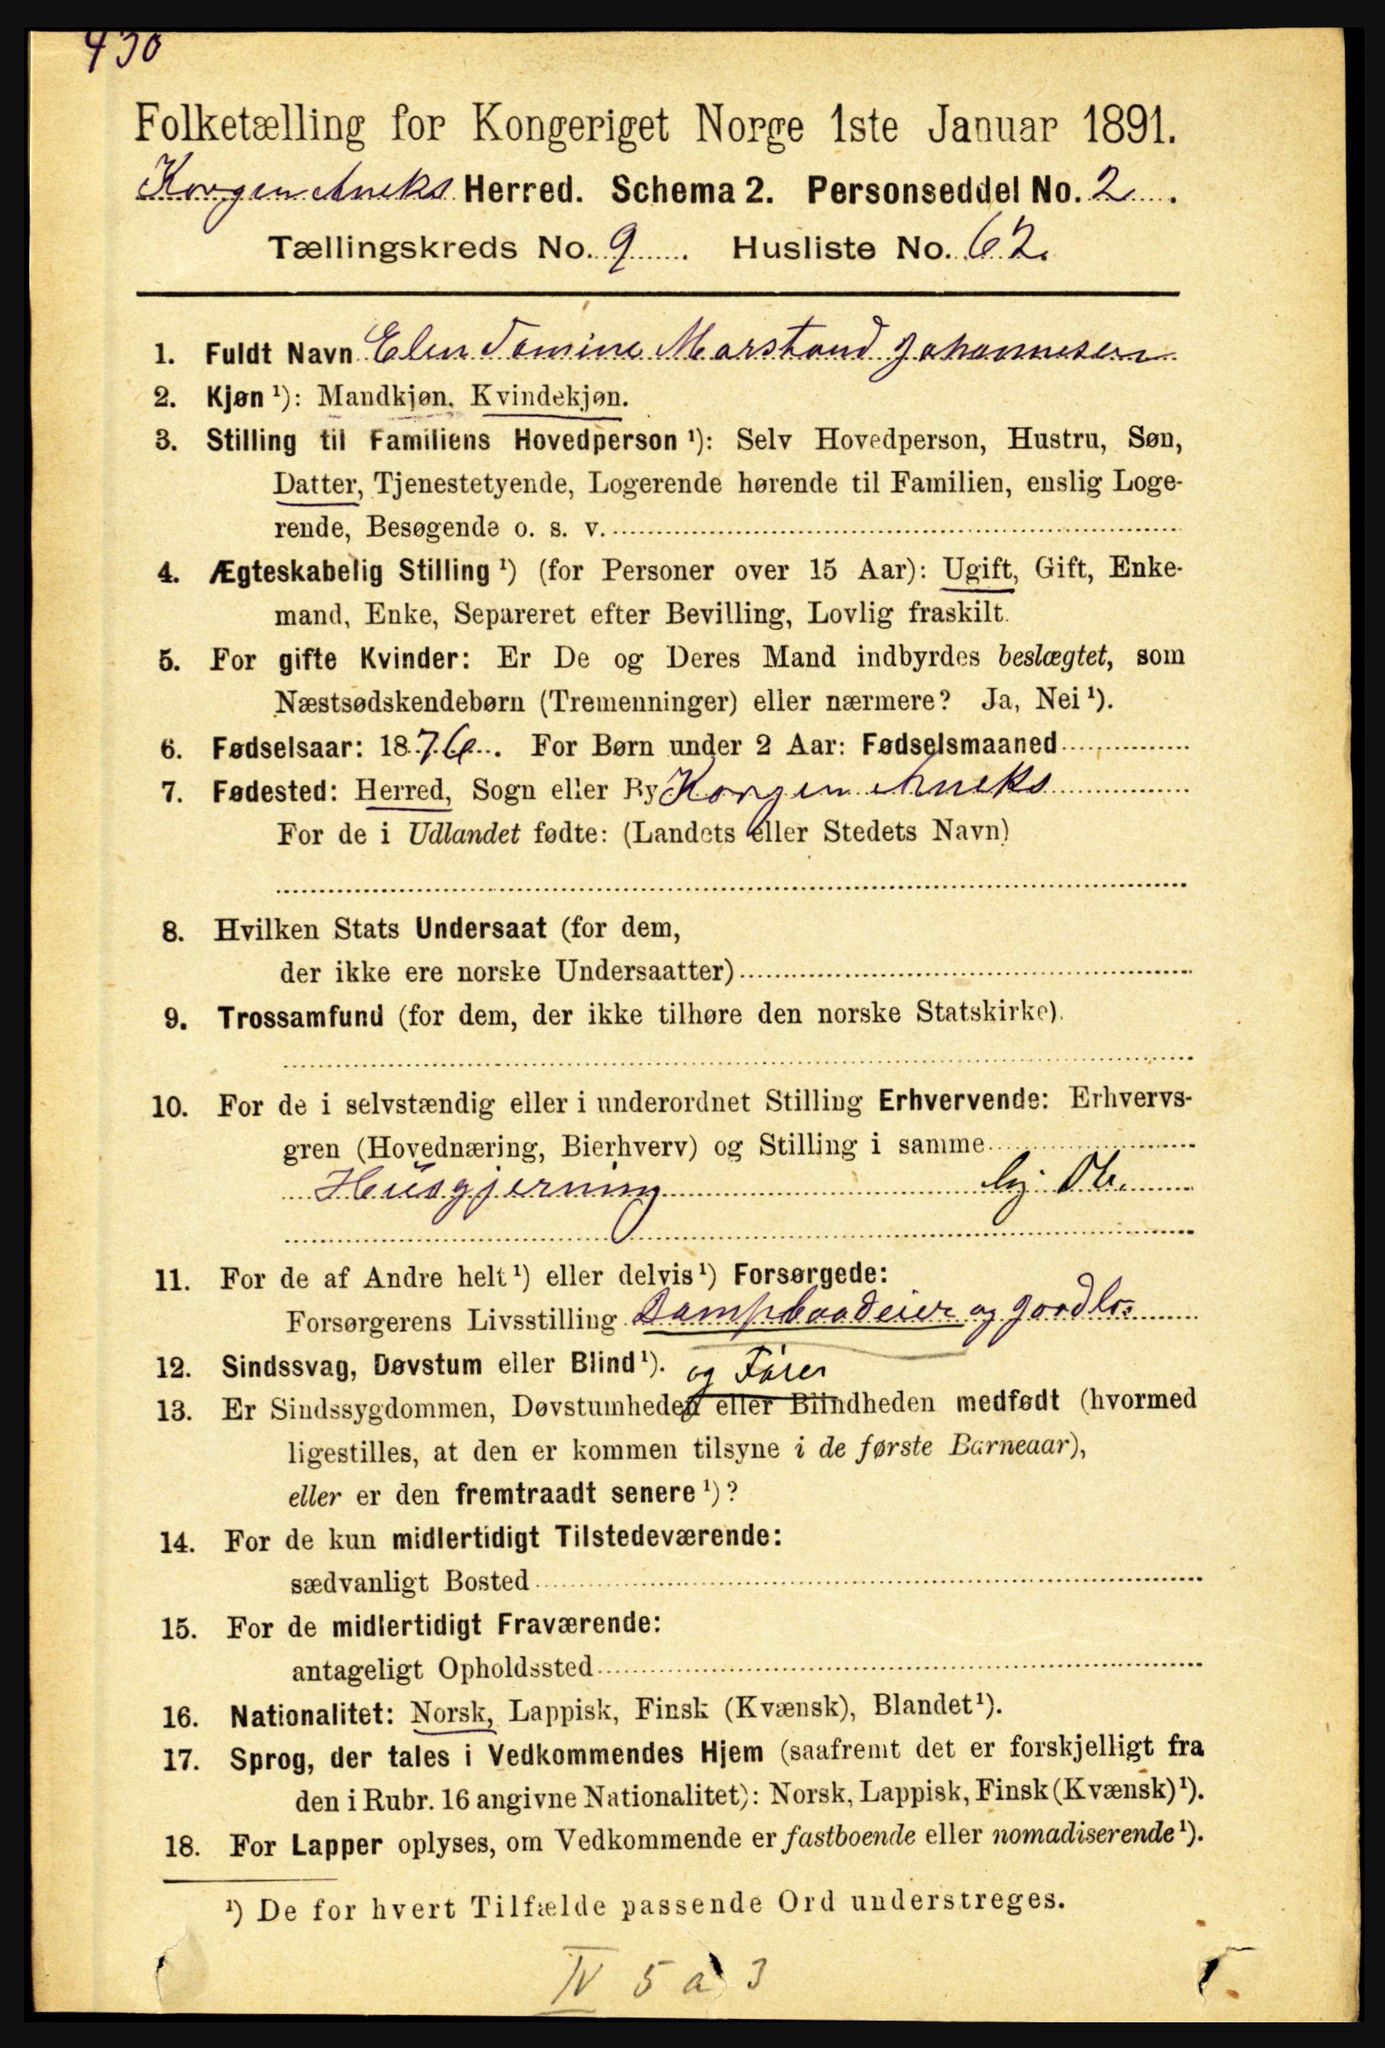 430
Folketælling for Kongeriget Norge 1ste Januar 1891.
Korgen Aneks Herred. Schema 2. Personseddel No. 2.
Tællingskreds No. 9. Husliste No. 62.
1. Fuldt Navn Elen Tomine Marstand Johannesen
2. Kjøn ¹): Mandkjøn, Kvindekjøn.
3. Stilling til Familiens Hovedperson ¹): Selv Hovedperson, Hustru, Søn,
Datter, Tjenestetyende, Logerende hørende til Familien, enslig Loge-
rende, Besøgende o. s. v.
4. Ægteskabelig Stilling ¹) (for Personer over 15 Aar): Ugift, Gift, Enke-
mand, Enke, Separeret efter Bevilling, Lovlig fraskilt.
5. For gifte Kvinder: Er De og Deres Mand indbyrdes beslægtet, som
Næstsødskendebørn (Tremenninger) eller nærmere? Ja, Nei ¹).
6. Fødselsaar: 1876. For Børn under 2 Aar: Fødselsmaaned
7. Fødested: Herred, Sogn eller By Korgen Aneks
For de i Udlandet fødte: (Landets eller Stedets Navn)
8. Hvilken Stats Undersaat (for dem,
der ikke ere norske Undersaatter)
9. Trossamfund (for dem, der ikke tilhøre den norske Statskirke).
10. For de i selvstændig eller i underordnet Stilling Erhvervende: Erhvervs-
gren (Hovednæring, Bierhverv) og Stilling i samme
Husgjerning
11. For de af Andre helt ¹) eller delvis ¹) Forsørgede:
Forsørgerens Livsstilling Dampbaadeier og gaardløs
12. Sindssvag, Døvstum eller Blind ¹). og Fører
13. Er Sindssygdommen, Døvstumheden eller Blindheden medfødt (hvormed
ligestilles, at den er kommen tilsyne i de første Barneaar),
eller er den fremtraadt senere ¹)?
14. For de kun midlertidigt Tilstedeværende:
sædvanligt Bosted
15. For de midlertidigt Fraværende:
antageligt Opholdssted
16. Nationalitet: Norsk, Lappisk, Finsk (Kvænsk), Blandet ¹).
17. Sprog, der tales i Vedkommendes Hjem (saafremt det er forskjelligt fra
den i Rubr. 16 angivne Nationalitet): Norsk, Lappisk, Finsk (Kvænsk) ¹).
18. For Lapper oplyses, om Vedkommende er fastboende eller nomadiserende ¹).
¹) De for hvert Tilfælde passende Ord understreges.
IV 5 a 3